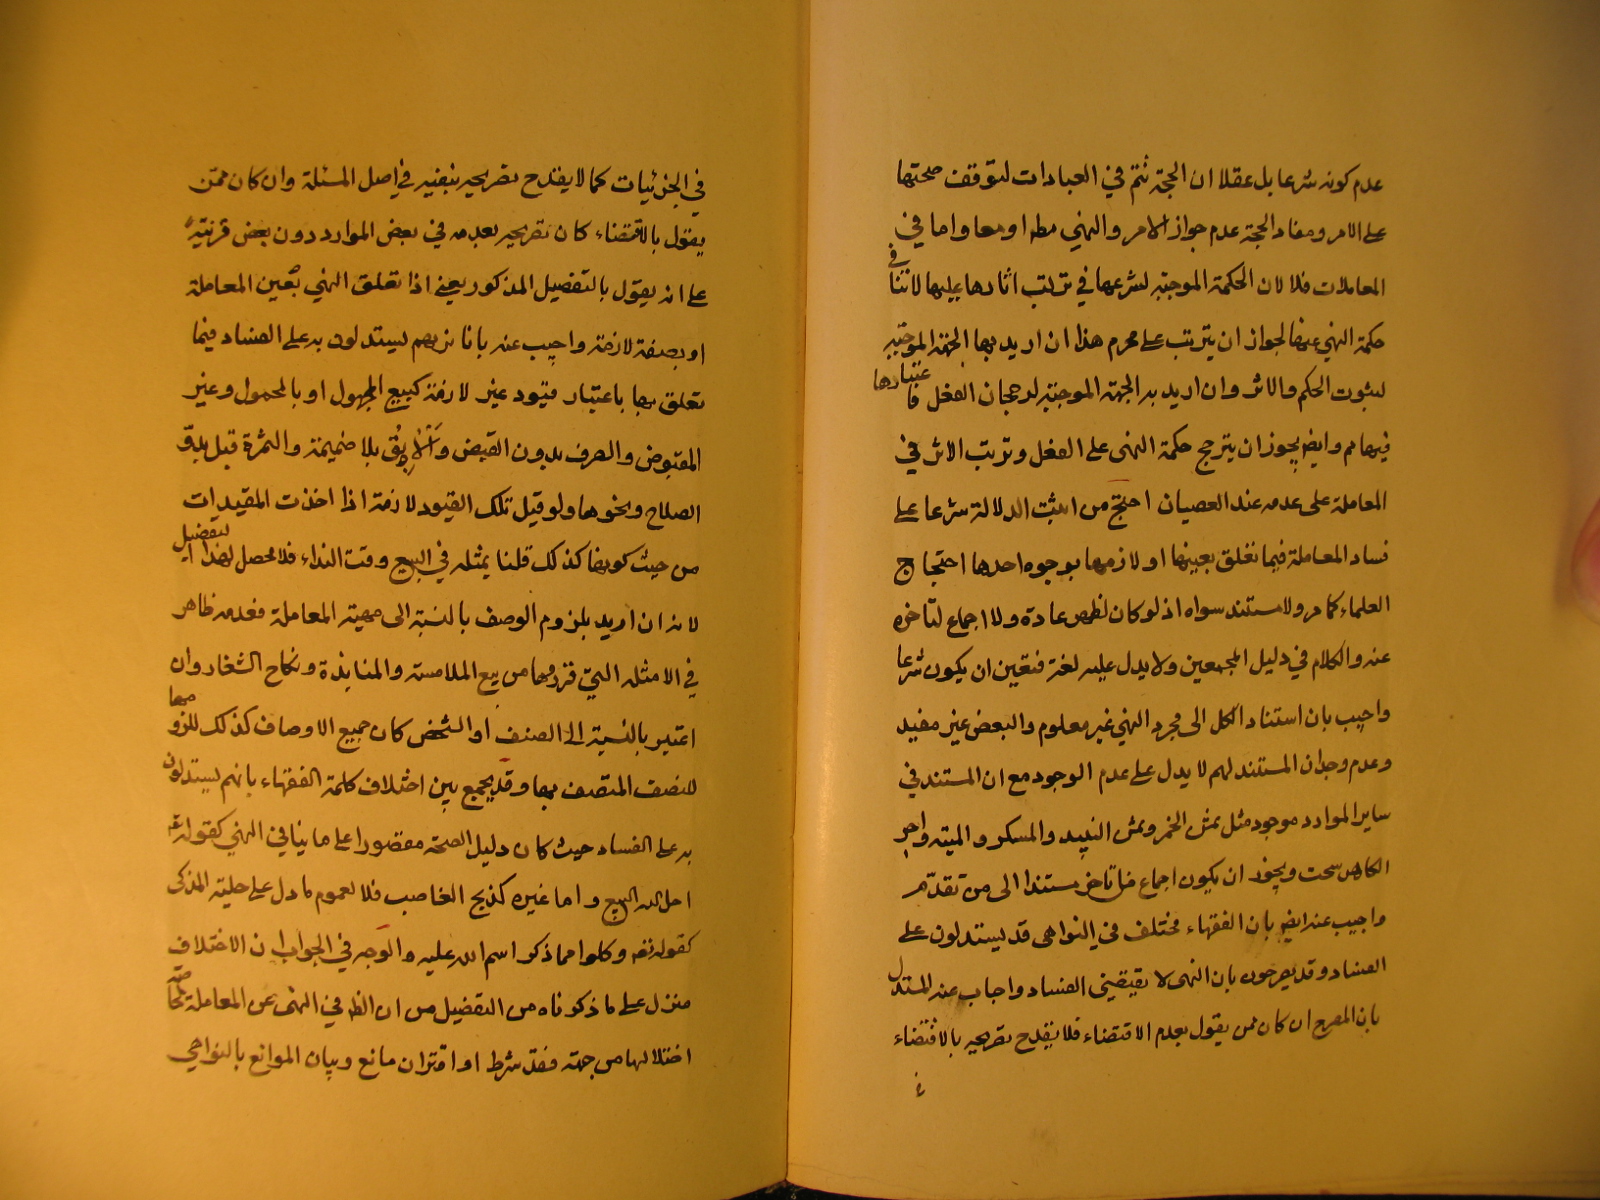 عدم كونه شرعا بل عقلا ان الحجة تتم في العبادات لتوقف صحتها
على الامر ومفاد الحجة عدم جواز الامر والنهي مطه او معا واما في
المعاملات فلا لان الحكمة الموجبة لشرعها في ترتب اثارها عليها لا تنافي
حكمة النهي عنها لجواز ان يترتب على محرم هذا ان اريد بها الجهة الموجبة
لثبوت الحكم والاثر وان اريد به الجهة الموجبة لرجحان الفعل فاعتبارها
فيها مم وايض يجوز ان يترجح حكمة النهى على الفعل وترتب الاثر في
المعاملة على عدمه عند العصيان احتج من اثبت الدلالة شرعا على
فساد المعاملة فيما تعلق بعينها او لازمها بوجوه احدها احتجاج
العلماء كما مر ولا مستند سواه اذ لو كان لظهر عادة ولا اجماع لتاخره
عنه والكلام في دليل المجمعين ولا يدل عليه لغة فتعين ان يكون شرعا
واجيب بان استناد الكل الى مجرد النهي غير معلوم والبعض غير مفيد
وعدم وجدان المستند لهم لا يدل على عدم الوجود مع ان المستند في
ساير الموارد موجود مثل ثمن الخمر وثمن النبيد والمسكر والميته واجر
الكاهن سحت ويجوز ان يكون اجماع من تاخر مستندا الى من تقدم
واجيب عنه ايض بان الفقهاء مختلف في النواهى قد يستدلون على
الفساد وقد يصرحون بان النهى لا يقتضي الفساد واجاب عنه المستدل
بان المصرح ان كان ممن يقول بعدم الاقتضاء فلا يقدح تصريحه بالاقتضاء
في
في الجزئيات كما لا يقدح تصريحه بنفيه في اصل المسئلة وان كان ممن
يقول بالاقتضاء كان تصريحه بعدمه في بعض الموارد دون بعض قرينة
على انه يقول بالتفصيل المذكور يعني اذا تعلق النهي بعين المعاملة
او بصفة لازمة واجيب عنه بانا نريهم يستدلون به على الفساد فيما
تعلق بها باعتبار قيود غير لازمة كبيع المجهول او بالمجهول وغير
المقبوض والصرف بدون القبض والابق بلا ضميمة والثمرة قبل بدو
الصلاح ونحوها ولو قيل تلك القيود لازمة اذا اخذت المقيدات
من حيث كونها كذلك قلنا بمثله في البيع وقت النداء فلا محصل لهذا التفصيل
لانه ان اريد بلزوم الوصف بالنسبة الى مهية المعاملة فعدمه ظاهر
في الامثله التي من بيع الملامسة والمنابذة ونكاح الشغار وان
اعتبر بالنسبة الى الصنف او الشخص كان جميع الاوصاف كذلك للزومها
للصنف المتصف بها وقد يجمع بين اختلاف كلمة الفقهاء بانهم يستدلون
به على الفساد حيث كان دليل الصحة مقصورا على ما ينافي النهي كقوله تعه
احل الله البيع واما غيره كذبح الغاصب فلا لعموم ما دل على حلية المذكى
كقوله تعه وكلوا مما ذكر اسم الله عليه والوجه في الجواب ان الاختلاف
منزل على ما ذكرناه من التفصيل من ان الظ في النهى عن المعاملة
اختلالها من جهة فقد شرط او اقتران مانع وبيان الموانع بالنواهي